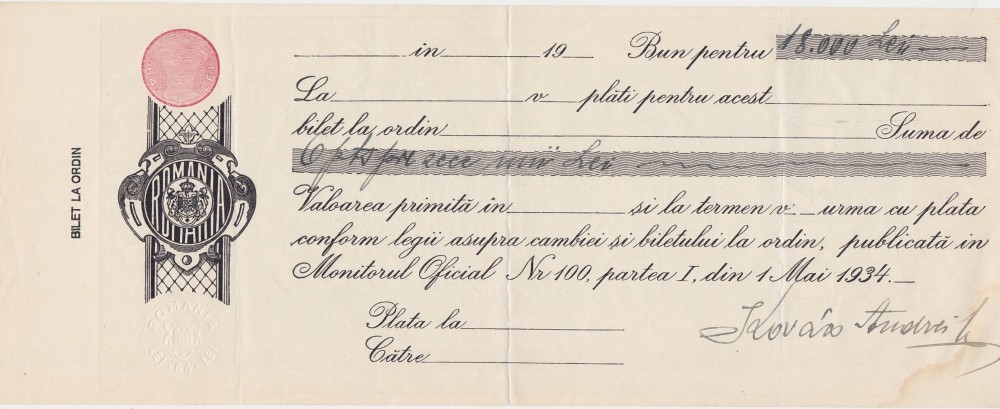 BILET LA ORDIN
64 LEI
ROMANIA
ROMANIA
LEI 64 LEI
in 19 Bun pentru 18.000 Lei
La v plăti pentru acest
bilet la ordin Suma de
Optsprezece mii Lei
Valoarea primită în și la termen v: urma cu plata
conform legii asupra cambiei și biletului la ordin, publicată in
Monitorul Oficial Nr 100, partea I, din 1 Mai 1934.
Plata la
Către
Kovács Andrei